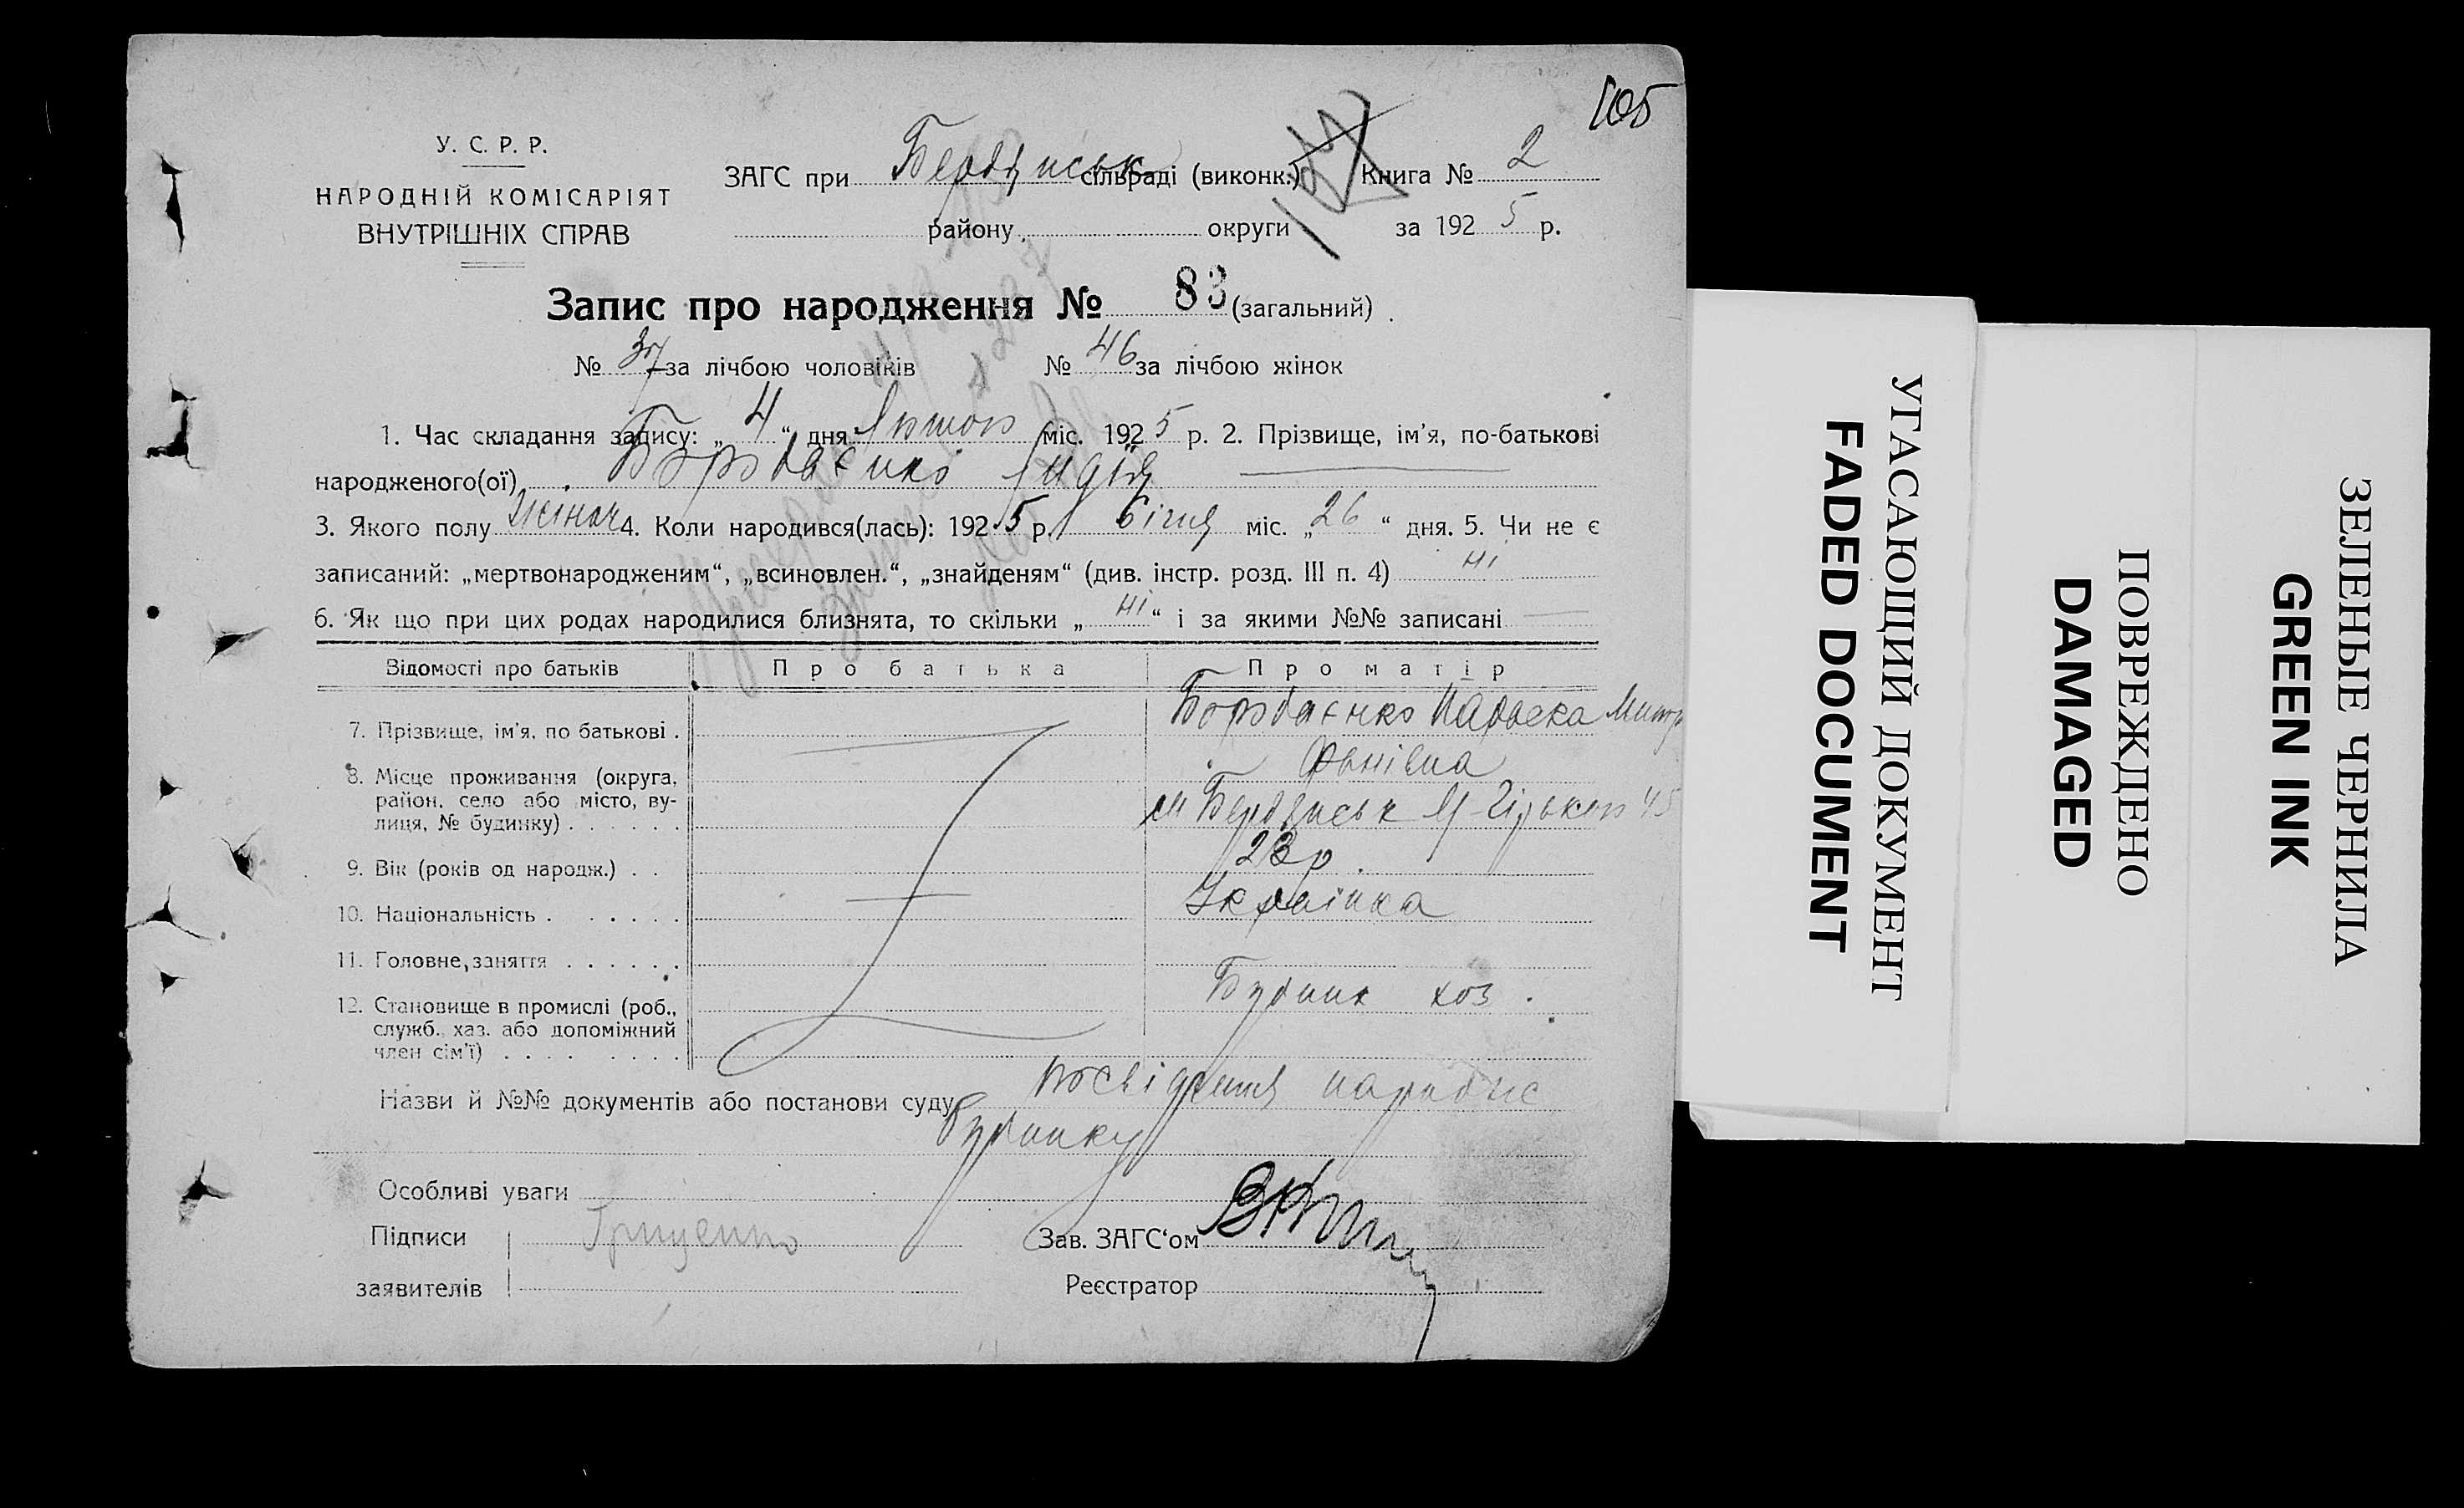 105
У. С. Р. Р.
НАРОДНІЙ КОМІСАРІЯТ
ВНУТРІШНІХ СПРАВ
ЗАГС при Бердянськ сільраді (виконк.) Книга № 2
району округи за 1925 р.
Запис про народження № 83 (загальний)
№ 37 за лічбою чоловіків № 46 за лічбою жінок
1. Час складання запису: „4“ дня міс. 1925 р. 2. Прізвище, ім'я, по-батькові
народженого(ої) Лидія
3. Якого полу жіноч 4. Коли народився(лась): 1925 р. Січня міс. „26“ дня. 5. Чи не є
записаний: „мертвонародженим“, „всиновлен.“, „знайденям“ (див. інстр. розд. III п. 4) ні
6. Як що при цих родах народилися близнята, то скільки „ні“ і за якими №№ записані
Відомості про батьків Про батька Про матір
7. Прізвище, ім'я, по батькові . Параска Митро
фанівна
8. Місце проживання (округа,
район, село або місто, ву-
лиця, № будинку) . . . . . . м Бердянськ 45
9. Вік (років од народж.) . . 23 р.
10. Національність . . . . . . Українка
11. Головне заняття . . . . . .
12. Становище в промислі (роб.,
служб., хаз. або допоміжний
член сім'ї) . . . . . . . . хоз.
Назви й №№ документів або постанови суду посвідчення
будинку
Особливі уваги
Підписи Грищенко Зав. ЗАГС‘ом
заявителів Реєстратор
УГАСАЮЩИЙ ДОКУМЕНТ
FADED DOCUMENT
ПОВРЕЖДЕНО
DAMAGED
ЗЕЛЕНЫЕ ЧЕРНИЛА
GREEN INK